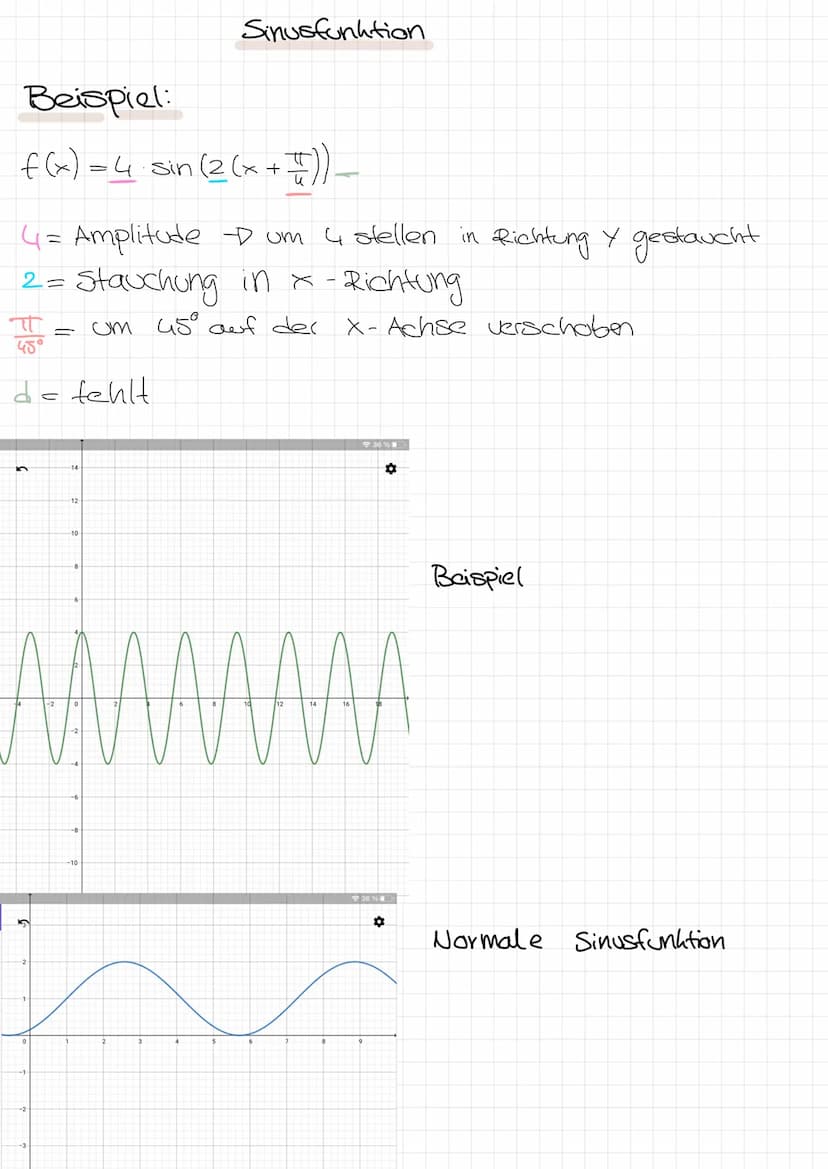 Sinusfunktion
Beispiel:
f(x) = 4 · sin(2(x + π/4)) _
4 = Amplitude → um 4 stellen in Richtung y gestaucht
2 = Stauchung in x-Richtung
π/45° = um 45° auf der x-Achse verschoben
d = fehlt
36 %
14
12
10
8
6
4
2
-4 -2 0 2 4 6 8 10 12 14 16 18
-2
-4
-6
-8
-10
Beispiel
36 %
Normale Sinusfunktion
2
1
0 1 2 3 4 5 6 7 8 9
-1
-2
-3